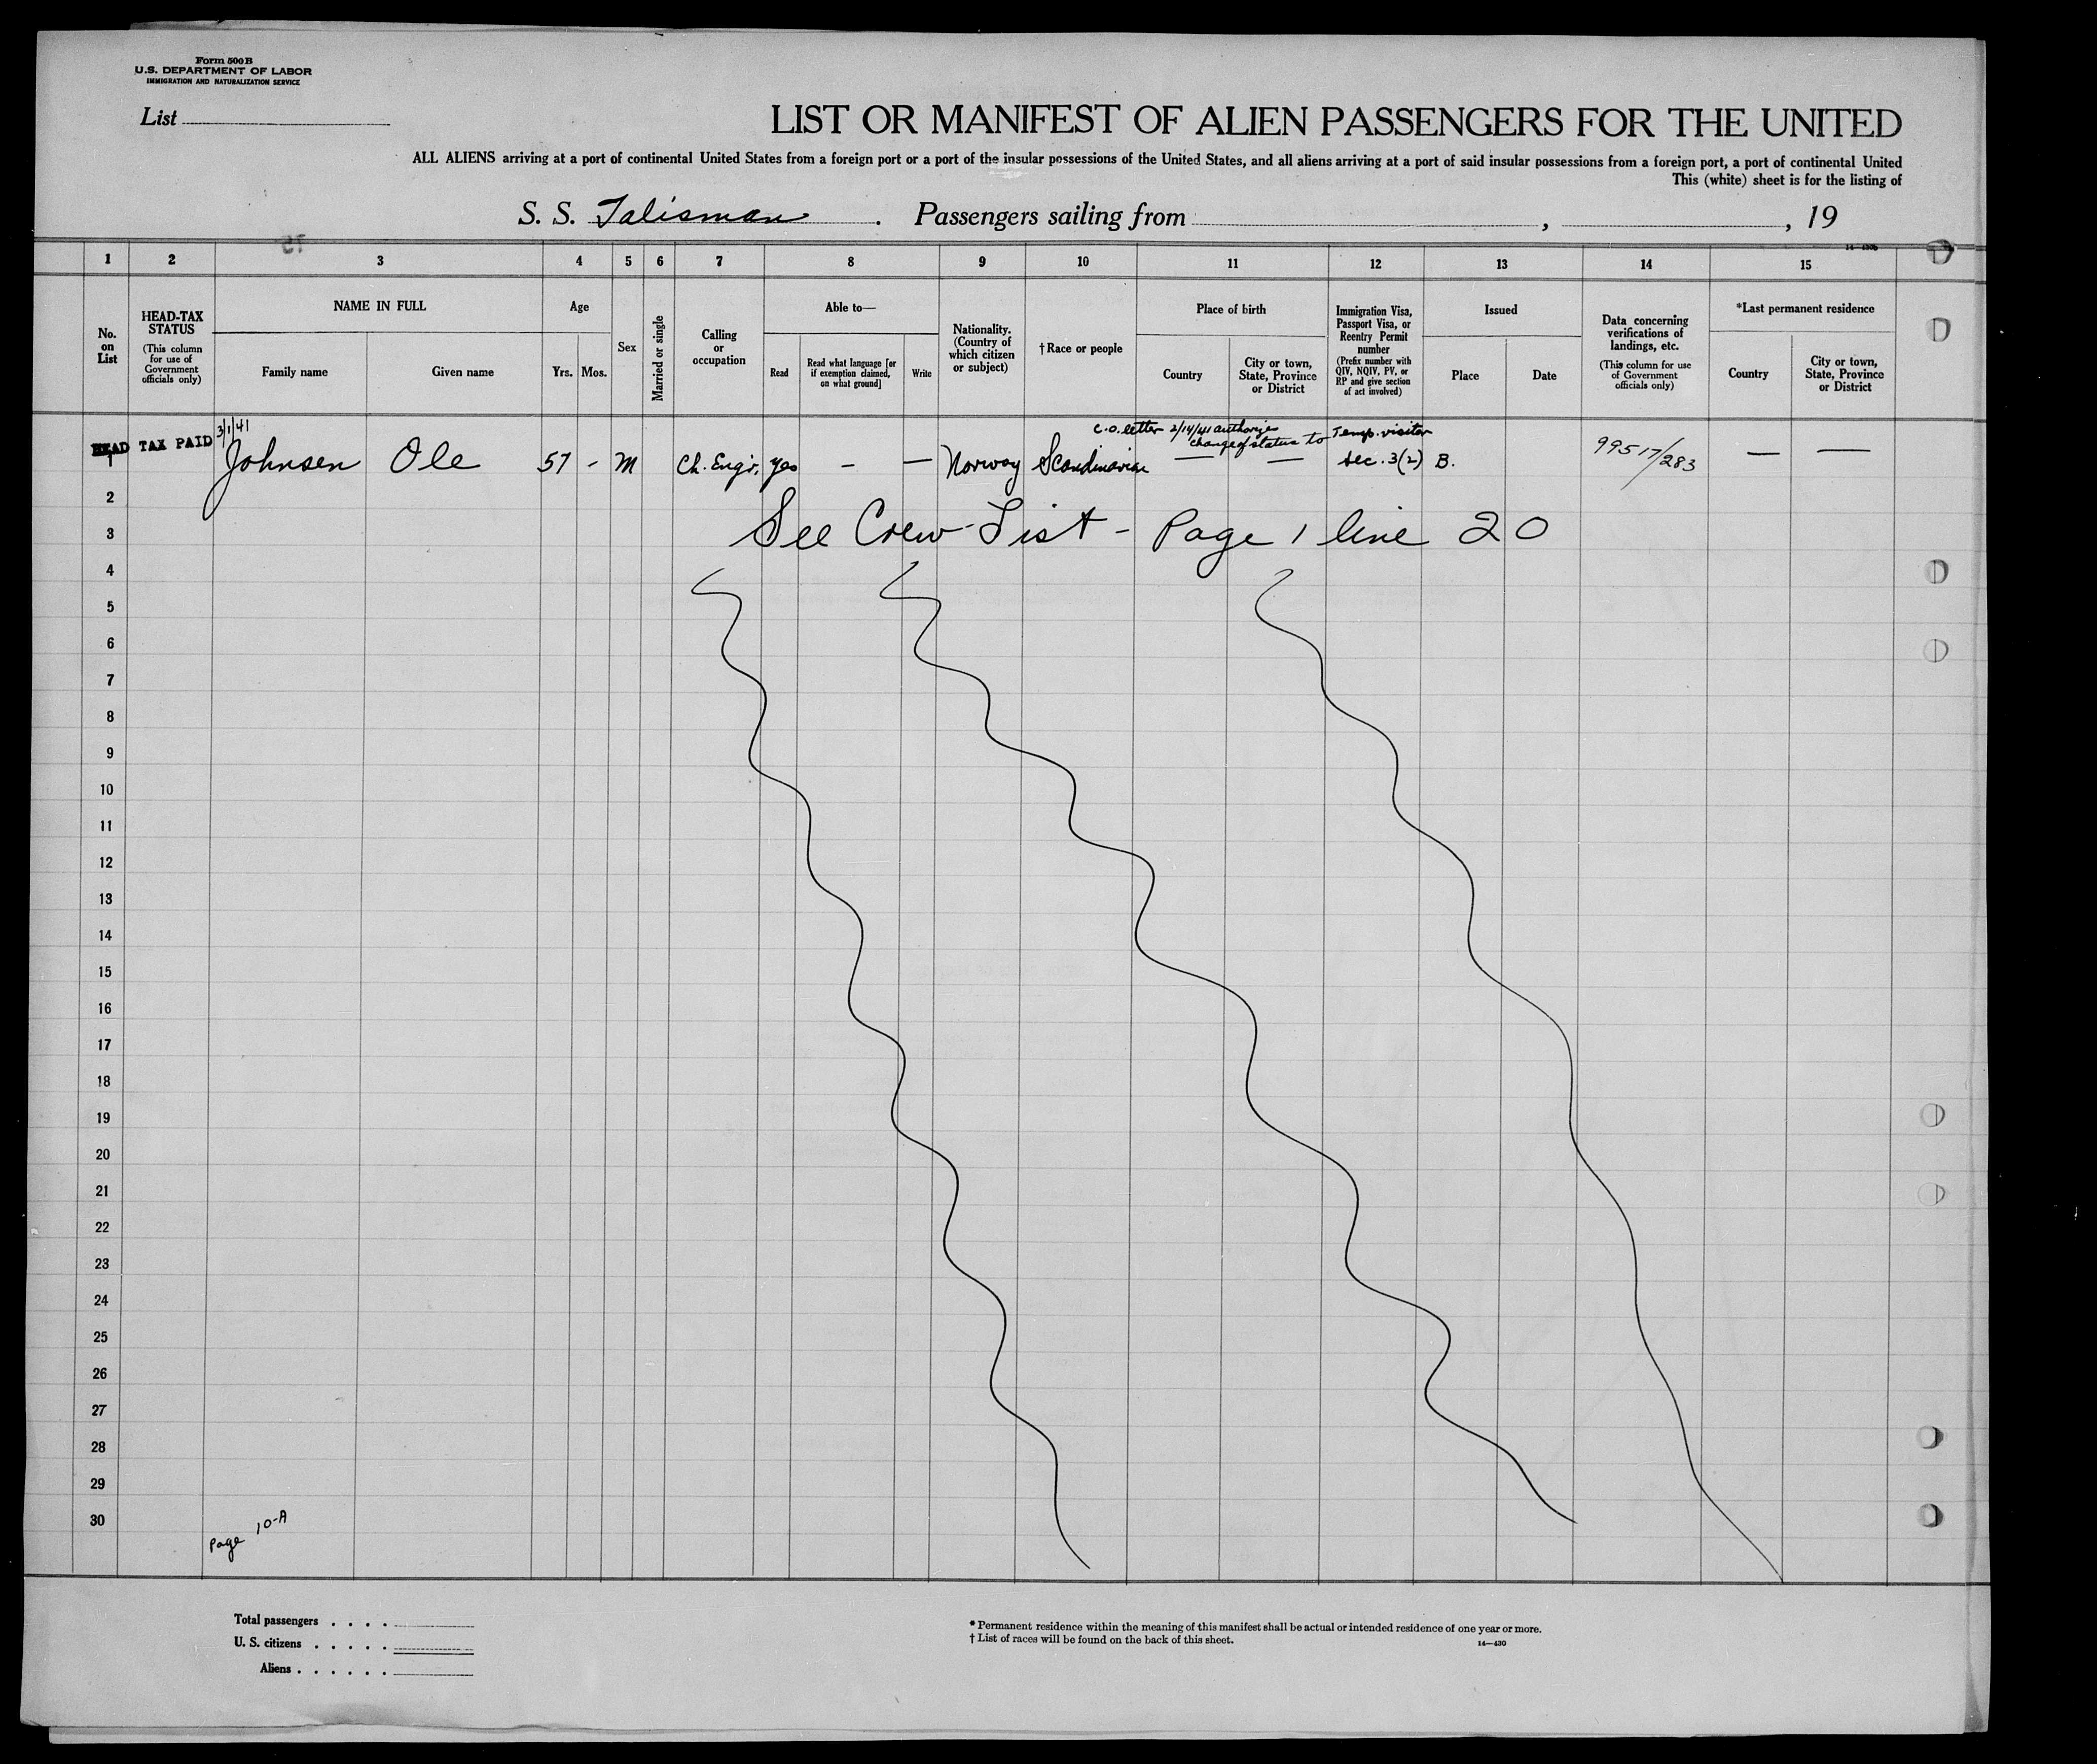 Form 500B
U.S. DEPARTMENT OF LABOR
IMMIGRATION AND NATURALIZATION SERVICE
List
LIST OR MANIFEST OF ALIEN PASSENGERS FOR THE UNITED
ALL ALIENS arriving at a port of continental United States from a foreign port or a port of the insular possessions of the United States, and all aliens arriving at a port of said insular possessions from a foreign port, a port of continental United
This (white) sheet is for the listing of
S. S. Talisman . Passengers sailing from , , 19
1 2 3 4 5 6 7 8 9 10 11 12 13 14 15
No. on List
HEAD-TAX STATUS
(This column for use of Government officials only)
NAME IN FULL
Family name
Given name
Age
Yrs.
Mos.
Sex
Married or single
Calling or occupation
Able to—
Read
Read what language [or if exemption claimed, on what ground]
Write
Nationality. (Country of which citizen or subject)
†Race or people
Place of birth
Country
City or town, State, Province or District
Immigration Visa, Passport Visa, or Reentry Permit number
(Prefix number with QIV, NQIV, PV, or RP and give section of act involved)
Issued
Place
Date
Data concerning verifications of landings, etc.
(This column for use of Government officials only)
*Last permanent residence
Country
City or town, State, Province or District
3/1/41
C.O. letter 2/14/41 authorizes
change of status to Temp. visitor
HEAD TAX PAID
1 Johnsen Ole 57 - M Ch. Engr. yes - — Norway Scandinavian — — Sec. 3(2) B. 99517/283 — —
2
3 See Crew List - Page 1 line 20
4
5
6
7
8
9
10
11
12
13
14
15
16
17
18
19
20
21
22
23
24
25
26
27
28
29
30
Page 10-A
Total passengers . . . .
U. S. citizens . . . . .
Aliens . . . . . .
* Permanent residence within the meaning of this manifest shall be actual or intended residence of one year or more.
† List of races will be found on the back of this sheet.
14—430